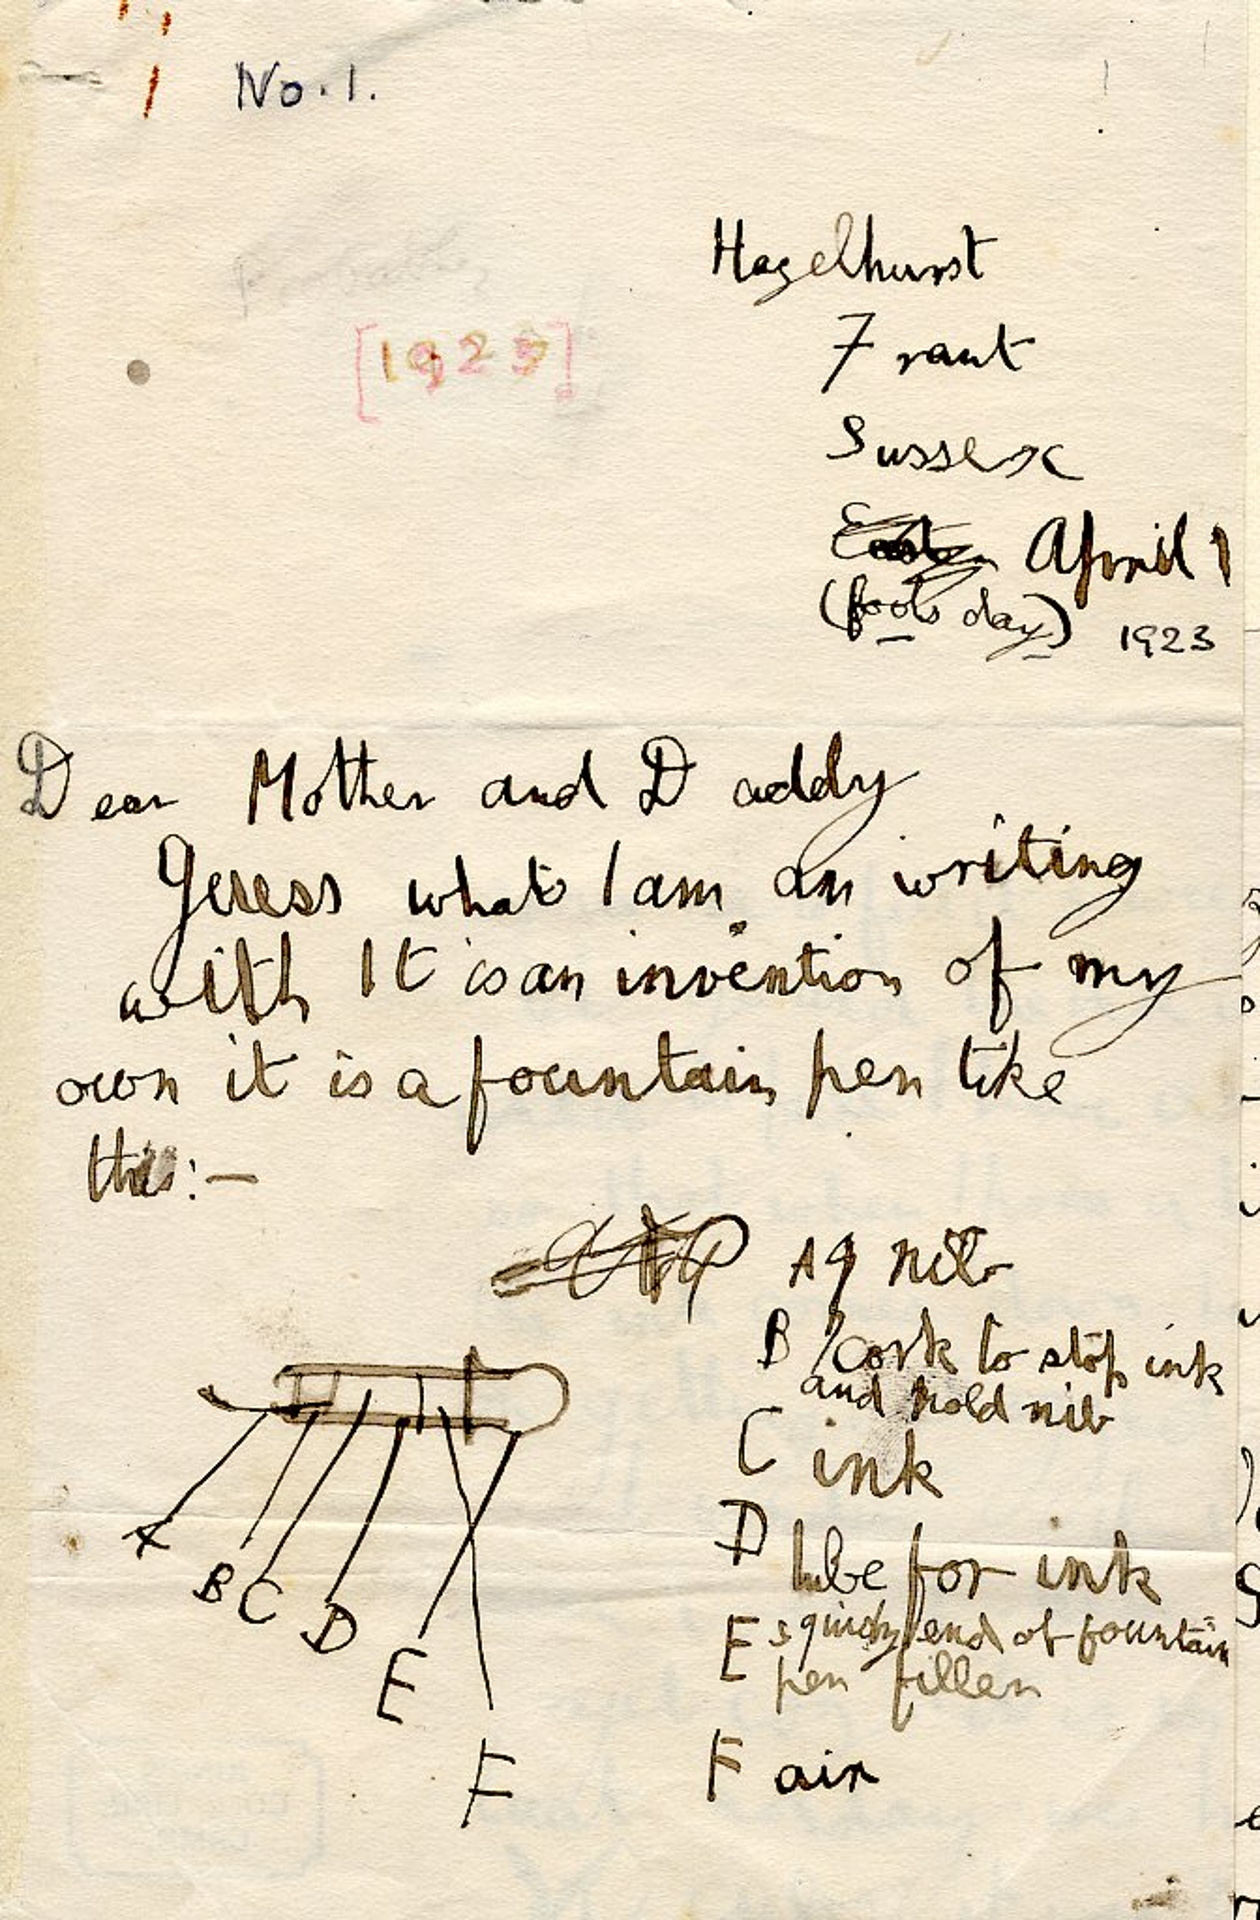 No. 1.
Hazelhurst
Frant
Sussex
[1923]
April 1
(fools day) 1923
Dear Mother and Daddy
Guess what I am an writing
with It is an invention of my
own it is a fountain pen like
this:-
A nib
B cork to stop ink
and hold nib
C ink
D tube for ink
E squishy end of fountain
pen filler
F air
A
B C D
E
F